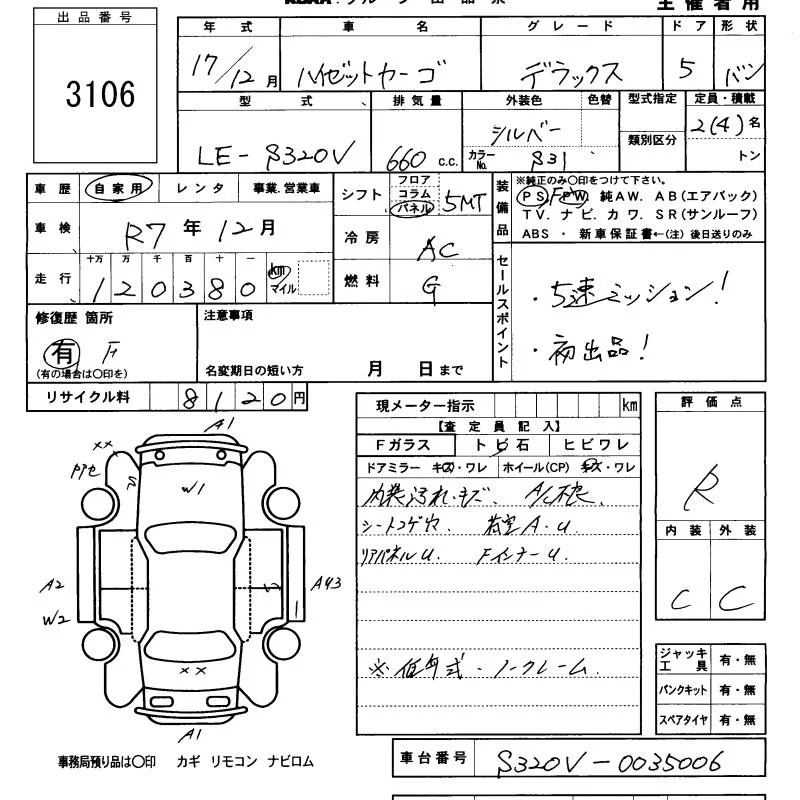 主催者用
出品番号
3106
年式 車名 グレード ドア 形状
17/12月 ハイゼットカーゴ デラックス 5 バン
型式 排気量 外装色 色替 型式指定 定員・積載
LE-S320V 660 c.c. シルバー 2(4)名
カラーNo. S31 類別区分 トン
車歴 自家用 レンタ 事業.営業車
シフト フロア コラム パネル 5MT
車検 R7年12月
冷房 AC
走行 十万 万 千 百 十 一
120380 km マイル
燃料 G
装備品 ※純正のみ〇印をつけて下さい。
PS. PW. 純AW. AB(エアバック)
TV. ナビ. カワ. SR(サンルーフ)
ABS ・ 新車保証書←(注) 後日送りのみ
セールスポイント
・5速ミッション!
・初出品!
修復歴 箇所
有 F
(有の場合は〇印を)
注意事項
名変期日の短い方 月 日まで
リサイクル料 8120円
現メーター指示 km
【査定員記入】
Fガラス トビ石 ヒビワレ
ドアミラー キズ・ワレ ホイール(CP) キズ・ワレ
内装汚れ・キズ. A/C不良.
シートコゲヤ. 荷室A.U
リアパネルU. FインナーU
※低年式・ノークレーム.
評価点
R
内装 外装
C C
ジャッキ工具 有・無
パンクキット 有・無
スペアタイヤ 有・無
A1
××
W1
A2
W2
A43
××
A1
事務局預り品は〇印 カギ リモコン ナビロム
車台番号 S320V-0035006